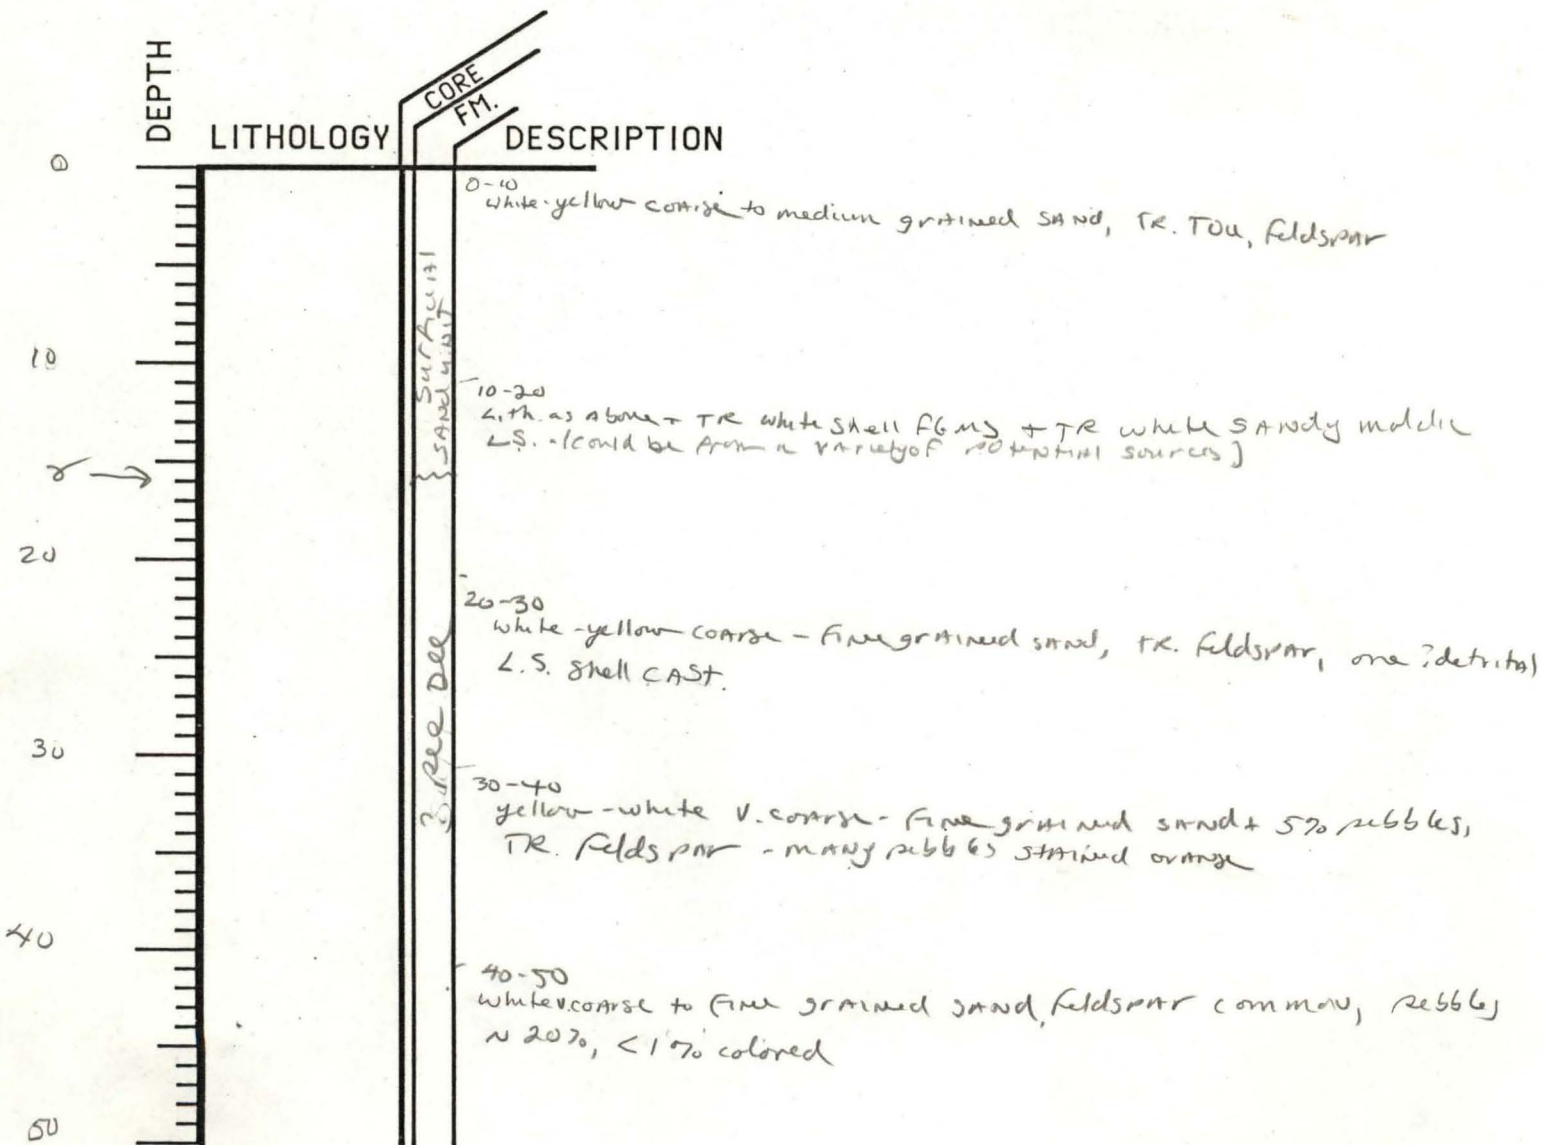 DEPTH
LITHOLOGY
CORE
FM.
DESCRIPTION
0
0-10
white-yellow coarse to medium grained SAND, TR. TOU, feldspar
Surficial
SAND UNIT
10
10-20
Lith. as Above + TR white shell FGMS + TR white SANdy moldic
LS. - (could be from a variety of potential sources]
γ →
20
20-30
white-yellow coarse - fine grained sand, TR. feldspar, one ?detrital
L.S. shell CAST.
? Pee Dee
30
30-40
yellow-white V. coarse - fine grained sand + 5% pebbles,
TR. feldspar - many pebbles stained orange
40
40-50
white v.coarse to fine grained sand, feldspar common, pebbles
~ 20%, <1% colored
50